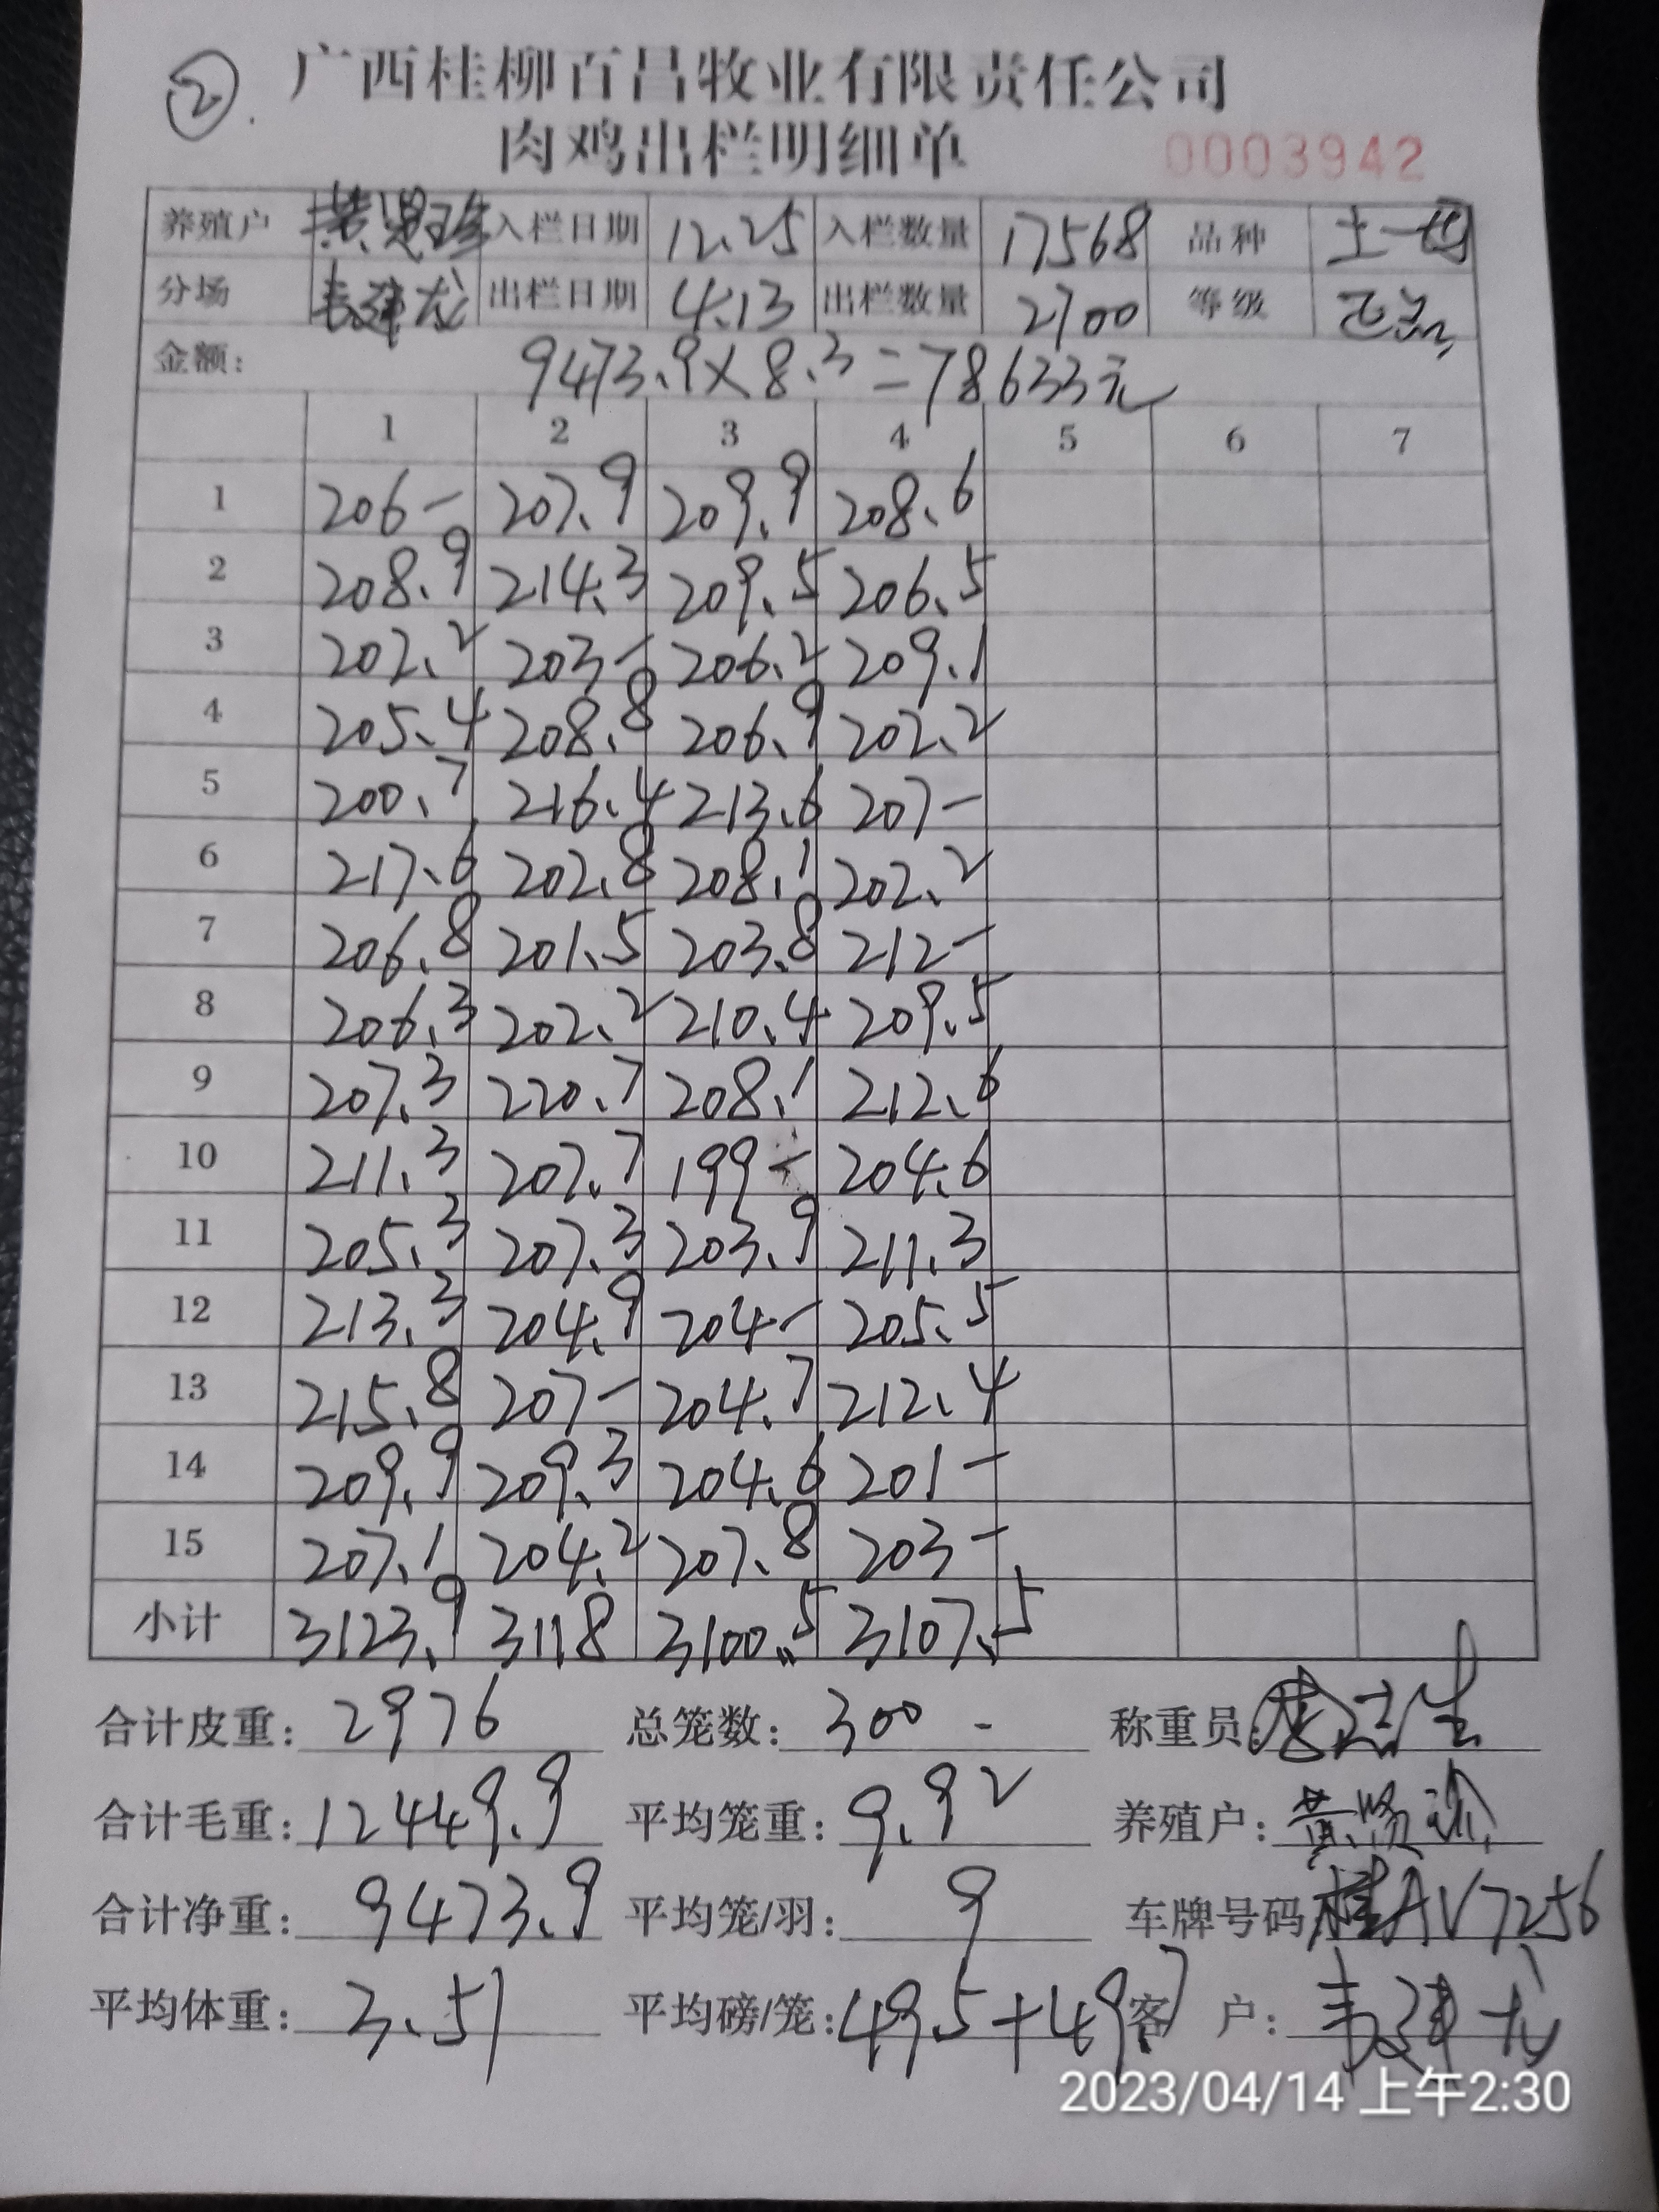 ② 广西桂柳百昌牧业有限责任公司
肉鸡出栏明细单 0003942
养殖户 入栏日期 12.25 入栏数量 17568 品种 土一
分场 韦建龙 出栏日期 4.13 出栏数量 2700 等级 正品
金额: 9473.9×8.3=78633元
1 2 3 4 5 6 7
1 206- 207.9 209.9 208.6
2 208.9 214.3 209.5 206.5
3 202.2 203- 206.2 209.1
4 205.4 208.8 206.9 202.2
5 200.7 216.4 213.6 207-
6 217.6 202.8 208.1 202.2
7 206.8 201.5 203.8 212-
8 206.3 202.2 210.4 209.5
9 207.3 220.7 208.1 212.6
10 211.3 207.7 199- 204.6
11 205.3 207.3 203.9 211.3
12 213.3 204.9 204- 205.5
13 215.8 207- 204.7 212.4
14 209.9 209.3 204.6 201-
15 207.1 204.2 207.8 203-
小计 3123.9 3118 3100.5 3107.5
合计皮重: 2976 总笼数: 300 - 称重员:
合计毛重: 12449.9 平均笼重: 9.92 养殖户: 黄
合计净重: 9473.9 平均笼/羽: 9 车牌号码 桂AV7256
平均体重: 3.51 平均磅/笼: 49.5+49.7 客户: 韦建龙
2023/04/14 上午2:30